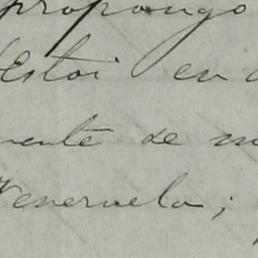 propongo
Estoi en
mente de
Venezuela;